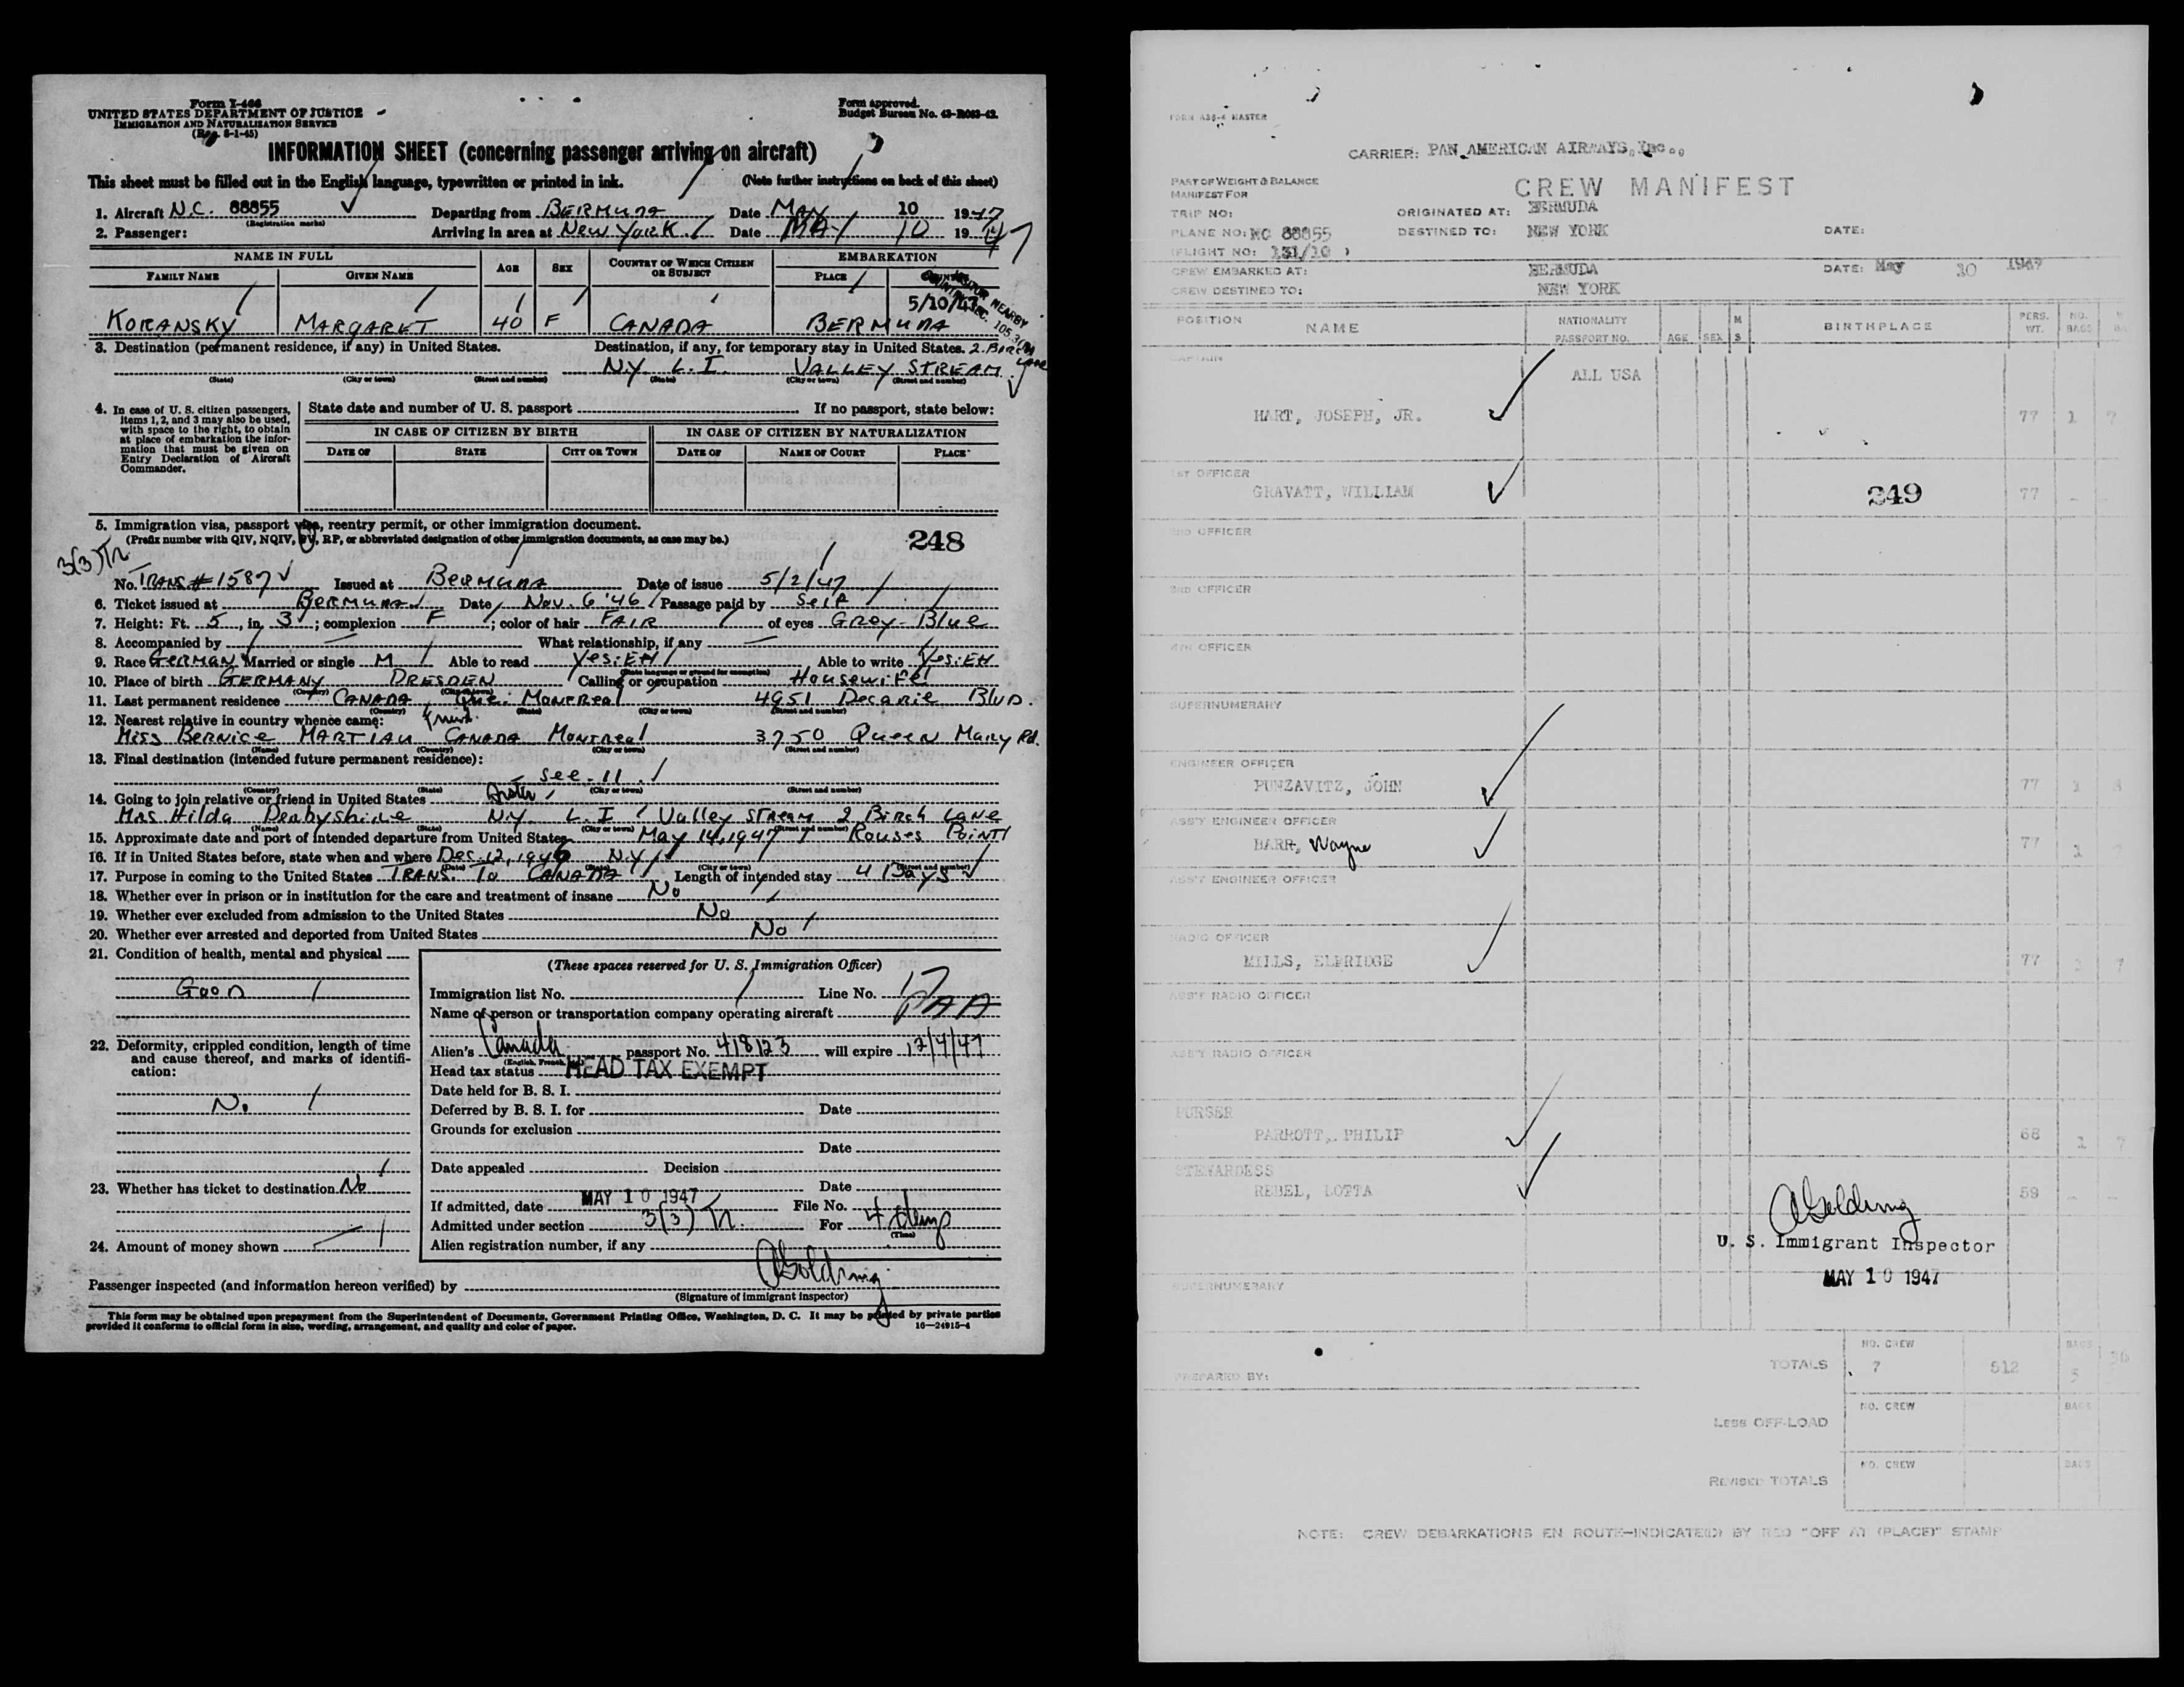 Form I-466
UNITED STATES DEPARTMENT OF JUSTICE
IMMIGRATION AND NATURALIZATION SERVICE
(Rev. 8-1-45)
Form approved.
Budget Bureau No. 43-R083-42.
INFORMATION SHEET (concerning passenger arriving on aircraft)
This sheet must be filled out in the English language, typewritten or printed in ink. (Note further instructions on back of this sheet)
1. Aircraft N.C. 88855 Departing from BERMUDA Date MAY 10 1947
(Registration marks)
2. Passenger: Arriving in area at New York Date MAY 10 1947
NAME IN FULL AGE SEX COUNTRY OF WHICH CITIZEN OR SUBJECT EMBARKATION
FAMILY NAME GIVEN NAME PLACE
5/10/47
KORANSKY MARGARET 40 F CANADA BERMUDA
3. Destination (permanent residence, if any) in United States. Destination, if any, for temporary stay in United States. 2. BIRCH LANE
N.Y. L.I. VALLEY STREAM
(State) (City or town) (Street and number) (State) (City or town) (Street and number)
4. In case of U. S. citizen passengers, items 1, 2, and 3 may also be used, with space to the right, to obtain at place of embarkation the information that must be given on Entry Declaration of Aircraft Commander.
State date and number of U. S. passport If no passport, state below:
IN CASE OF CITIZEN BY BIRTH IN CASE OF CITIZEN BY NATURALIZATION
DATE OF STATE CITY OR TOWN DATE OF NAME OF COURT PLACE
5. Immigration visa, passport visa, reentry permit, or other immigration document.
(Prefix number with QIV, NQIV, PV, RP, or abbreviated designation of other immigration documents, as case may be.)
248
3(3) Tr
No. TRANS # 1587 Issued at BERMUDA Date of issue 5/2/47
6. Ticket issued at BERMUDA Date Nov. 6 '46 Passage paid by Self
7. Height: Ft. 5, in. 3; complexion F; color of hair FAIR of eyes Grey-Blue
8. Accompanied by — What relationship, if any —
9. Race GERMAN Married or single M Able to read Yes: EH Able to write Yes: EH
(State language or ground for exemption)
10. Place of birth GERMANY DRESDEN Calling or occupation Housewife
(Country) (City or town)
11. Last permanent residence CANADA Que. Montreal 4951 Decarie Blvd.
(Country) (State) (City or town) (Street and number)
12. Nearest relative in country whence came: friend.
Miss Bernice MARTIAU CANADA Montreal 3750 Queen Mary Rd.
(Name) (Country) (City or town) (Street and number)
13. Final destination (intended future permanent residence):
See. 11.
(Country) (State) (City or town) (Street and number)
14. Going to join relative or friend in United States Sister
Mrs Hilda Derbyshire N.Y. L.I. Valley Stream 2 Birch Lane
(Name) (State) (City or town) (Street and number)
15. Approximate date and port of intended departure from United States May 14, 1947 Rouses Point
16. If in United States before, state when and where Dec. 12, 1946 N.Y.
(Date) (State) (City or town) (Street and number)
17. Purpose in coming to the United States TRANS. To CANADA Length of intended stay 4 Days
18. Whether ever in prison or in institution for the care and treatment of insane No
19. Whether ever excluded from admission to the United States No
20. Whether ever arrested and deported from United States No
21. Condition of health, mental and physical
Good
22. Deformity, crippled condition, length of time and cause thereof, and marks of identification:
No
23. Whether has ticket to destination No
24. Amount of money shown —
(These spaces reserved for U. S. Immigration Officer)
Immigration list No. Line No. 17
Name of person or transportation company operating aircraft PAA
Alien's Canada passport No. 418123 will expire 12/4/47
Head tax status HEAD TAX EXEMPT
Date held for B. S. I.
Deferred by B. S. I. for Date
Grounds for exclusion
Date
Date appealed Decision
Date
If admitted, date MAY 10 1947 File No.
Admitted under section 3(3) Tr. For 4 days
(Time)
Alien registration number, if any
Passenger inspected (and information hereon verified) by AGolding
(Signature of immigrant inspector)
This form may be obtained upon prepayment from the Superintendent of Documents, Government Printing Office, Washington, D. C. It may be printed by private parties
provided it conforms to official form in size, wording, arrangement, and quality and color of paper. 16—24915-4
MASTER
CARRIER: PAN AMERICAN AIRWAYS, Inc.,
PART OF WEIGHT & BALANCE
MANIFEST FOR
CREW MANIFEST
TRIP NO: ORIGINATED AT: BERMUDA
PLANE NO: NC 88855 DESTINED TO: NEW YORK DATE:
(FLIGHT NO: 131/10 )
CREW EMBARKED AT: BERMUDA DATE: May 10 1947
CREW DESTINED TO: NEW YORK
POSITION NAME NATIONALITY PASSPORT NO. AGE SEX M S BIRTHPLACE PERS. WT. NO. BAGS
CAPTAIN
ALL USA
HART, JOSEPH, JR. 77 1 7
1ST OFFICER
GRAVATT, WILLIAM 77 - -
249
2ND OFFICER
3RD OFFICER
4TH OFFICER
SUPERNUMERARY
ENGINEER OFFICER
PUNZAVITZ, JOHN 77 1 8
ASS'T ENGINEER OFFICER
BARR, Wayne 77 1 7
ASS'T ENGINEER OFFICER
RADIO OFFICER
MILLS, ELDRIDGE 77 1 7
ASS'T RADIO OFFICER
ASS'T RADIO OFFICER
PURSER
PARROTT, PHILIP 68 1 7
STEWARDESS
REBEL, LOTTA 59 - -
AGolding
U. S. Immigrant Inspector
MAY 10 1947
SUPERNUMERARY
PREPARED BY:
TOTALS NO. CREW 7 512 BAGS 5 36
LESS OFF-LOAD NO. CREW BAGS
REVISED TOTALS NO. CREW BAGS
NOTE: CREW DEBARKATIONS EN ROUTE—INDICATE(D) BY RED "OFF AT (PLACE)" STAMP